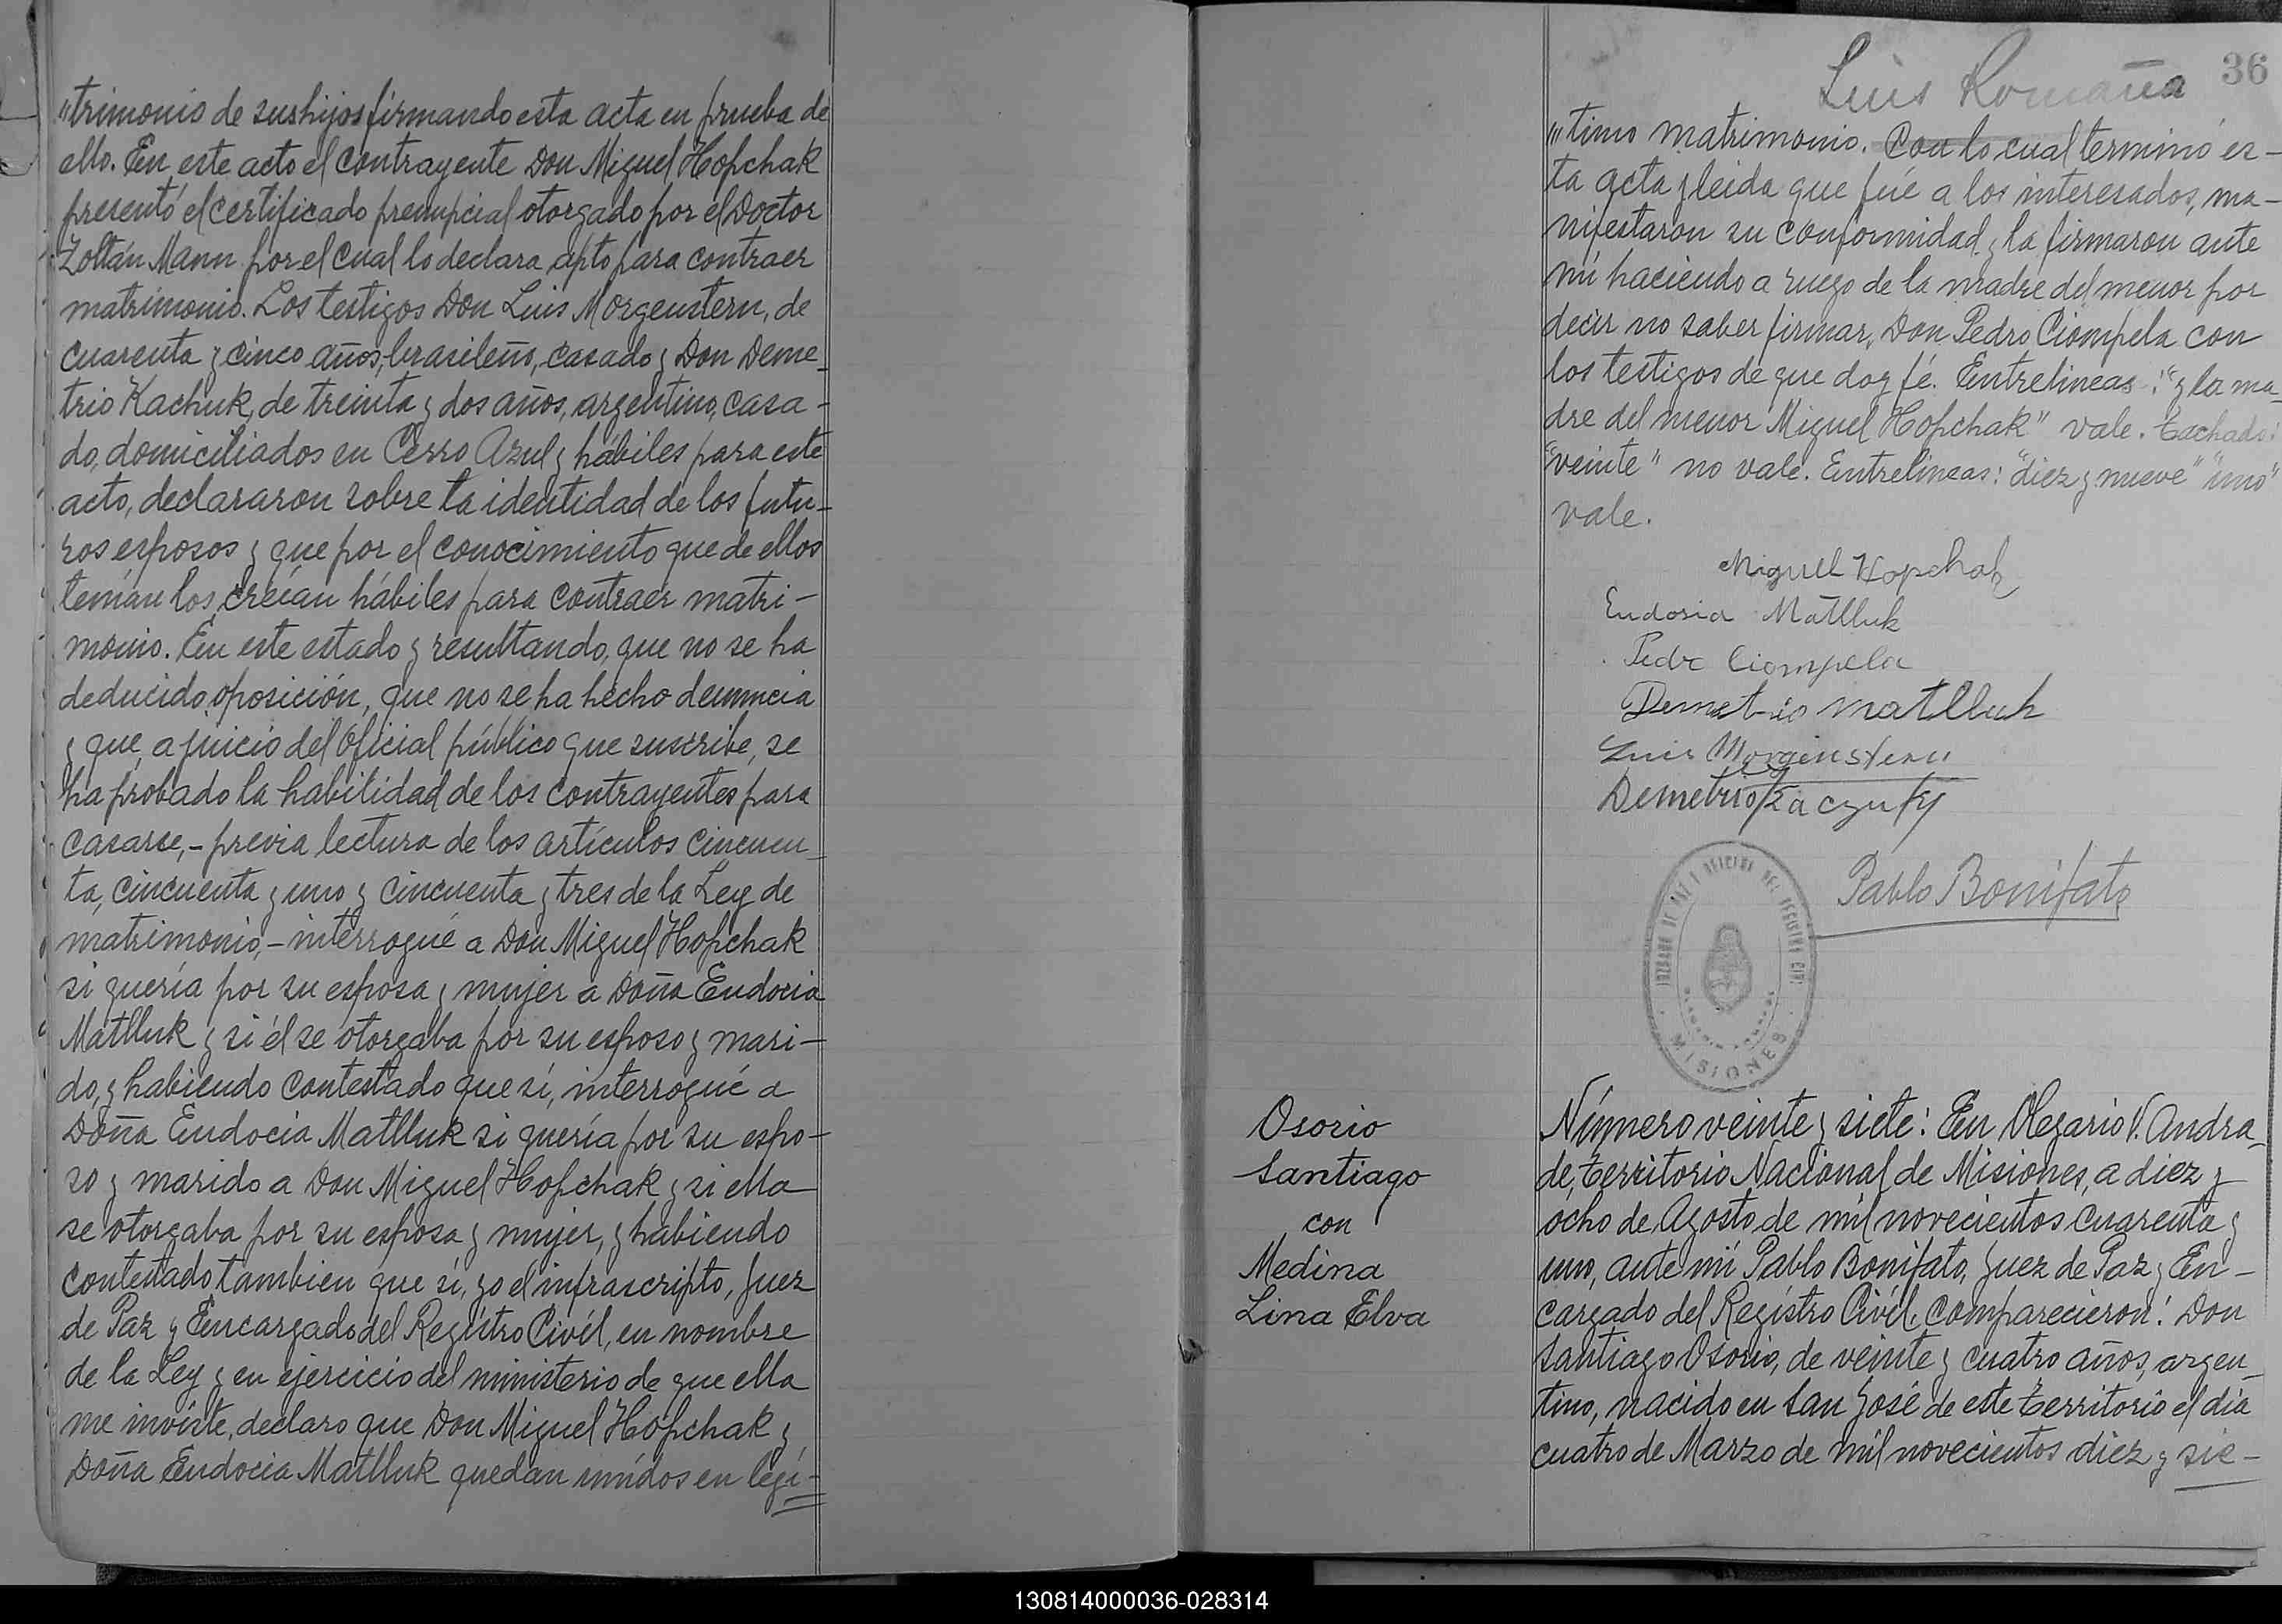 "trimonio de sus hijos firmando esta acta en prueba de
ello. En este acto el contrayente Don Miguel Hopchak
presentó el certificado prenupcial otorgado por el Doctor
Zoltán Mann por el cual lo declara apto para contraer
matrimonio. Los testigos Don Luis Morgenstern, de
cuarenta y cinco años, brasileño, casado y Don Deme-
trio Kachuk, de treinta y dos años, argentino, casa-
do, domiciliados en Cerro Azul y hábiles para este
acto, declararon sobre la identidad de los futu-
ros esposos y que por el conocimiento que de ellos
tenían los creían hábiles para contraer matri-
monio. En este estado y resultando, que no se ha
deducido oposición, que no se ha hecho denuncia
y que, a juicio del Oficial público que suscribe, se
ha probado la habilidad de los contrayentes para
casarse,- previa lectura de los artículos cincuen-
ta, cincuenta y uno y cincuenta y tres de la Ley de
matrimonio,- interrogué a Don Miguel Hopchak
si quería por su esposa y mujer a Doña Eudocia
Matlluk y si él se otorgaba por su esposo y mari-
do, y habiendo contestado que sí, interrogué a
Doña Eudocia Matlluk si quería por su espo-
so y marido a Don Miguel Hopchak y si ella
se otorgaba por su esposa y mujer, y habiendo
contestado tambien que sí, yo el infrascripto, Juez
de Paz y Encargado del Registro Civil, en nombre
de la Ley y en ejercicio del ministerio de que ella
me inviste, declaro que Don Miguel Hopchak y
Doña Eudocia Matlluk quedan unidos en legí-
Luis Romaña
36
"'timo matrimonio. Con lo cual terminó es-
ta acta y leida que fué a los interesados, ma-
nifestaron su conformidad y la firmaron ante
mí haciendo a ruego de la madre del menor por
decir no saber firmar, Don Pedro Ciompela con
los testigos de que doy fé. Entrelineas: "y la ma-
dre del menor Miguel Hopchak" vale. Tachado:
"veinte" no vale. Entrelineas: "diez y nueve" "uno"
vale.
Miguel Hopchak
Eudosia Matlluk
Pedro Ciompela
Demetrio Matlluk
Luis Morgenstern
Demetrio
Pablo Bonifato
JUZGADO DE PAZ Y OFICINA DEL REGISTRO CIVIL
MISIONES
Osorio
Santiago
con
Medina
Lina Elva
Número veinte y siete: En Olegario V. Andra-
de, Territorio Nacional de Misiones, a diez y
ocho de Agosto de mil novecientos cuarenta y
uno, ante mí Pablo Bonifato, Juez de Paz y En-
cargado del Registro Civil, comparecieron: Don
Santiago Osorio, de veinte y cuatro años, argen-
tino, nacido en San José de este Territorio el día
cuatro de Marzo de mil novecientos diez y sie-
130814000036-028314